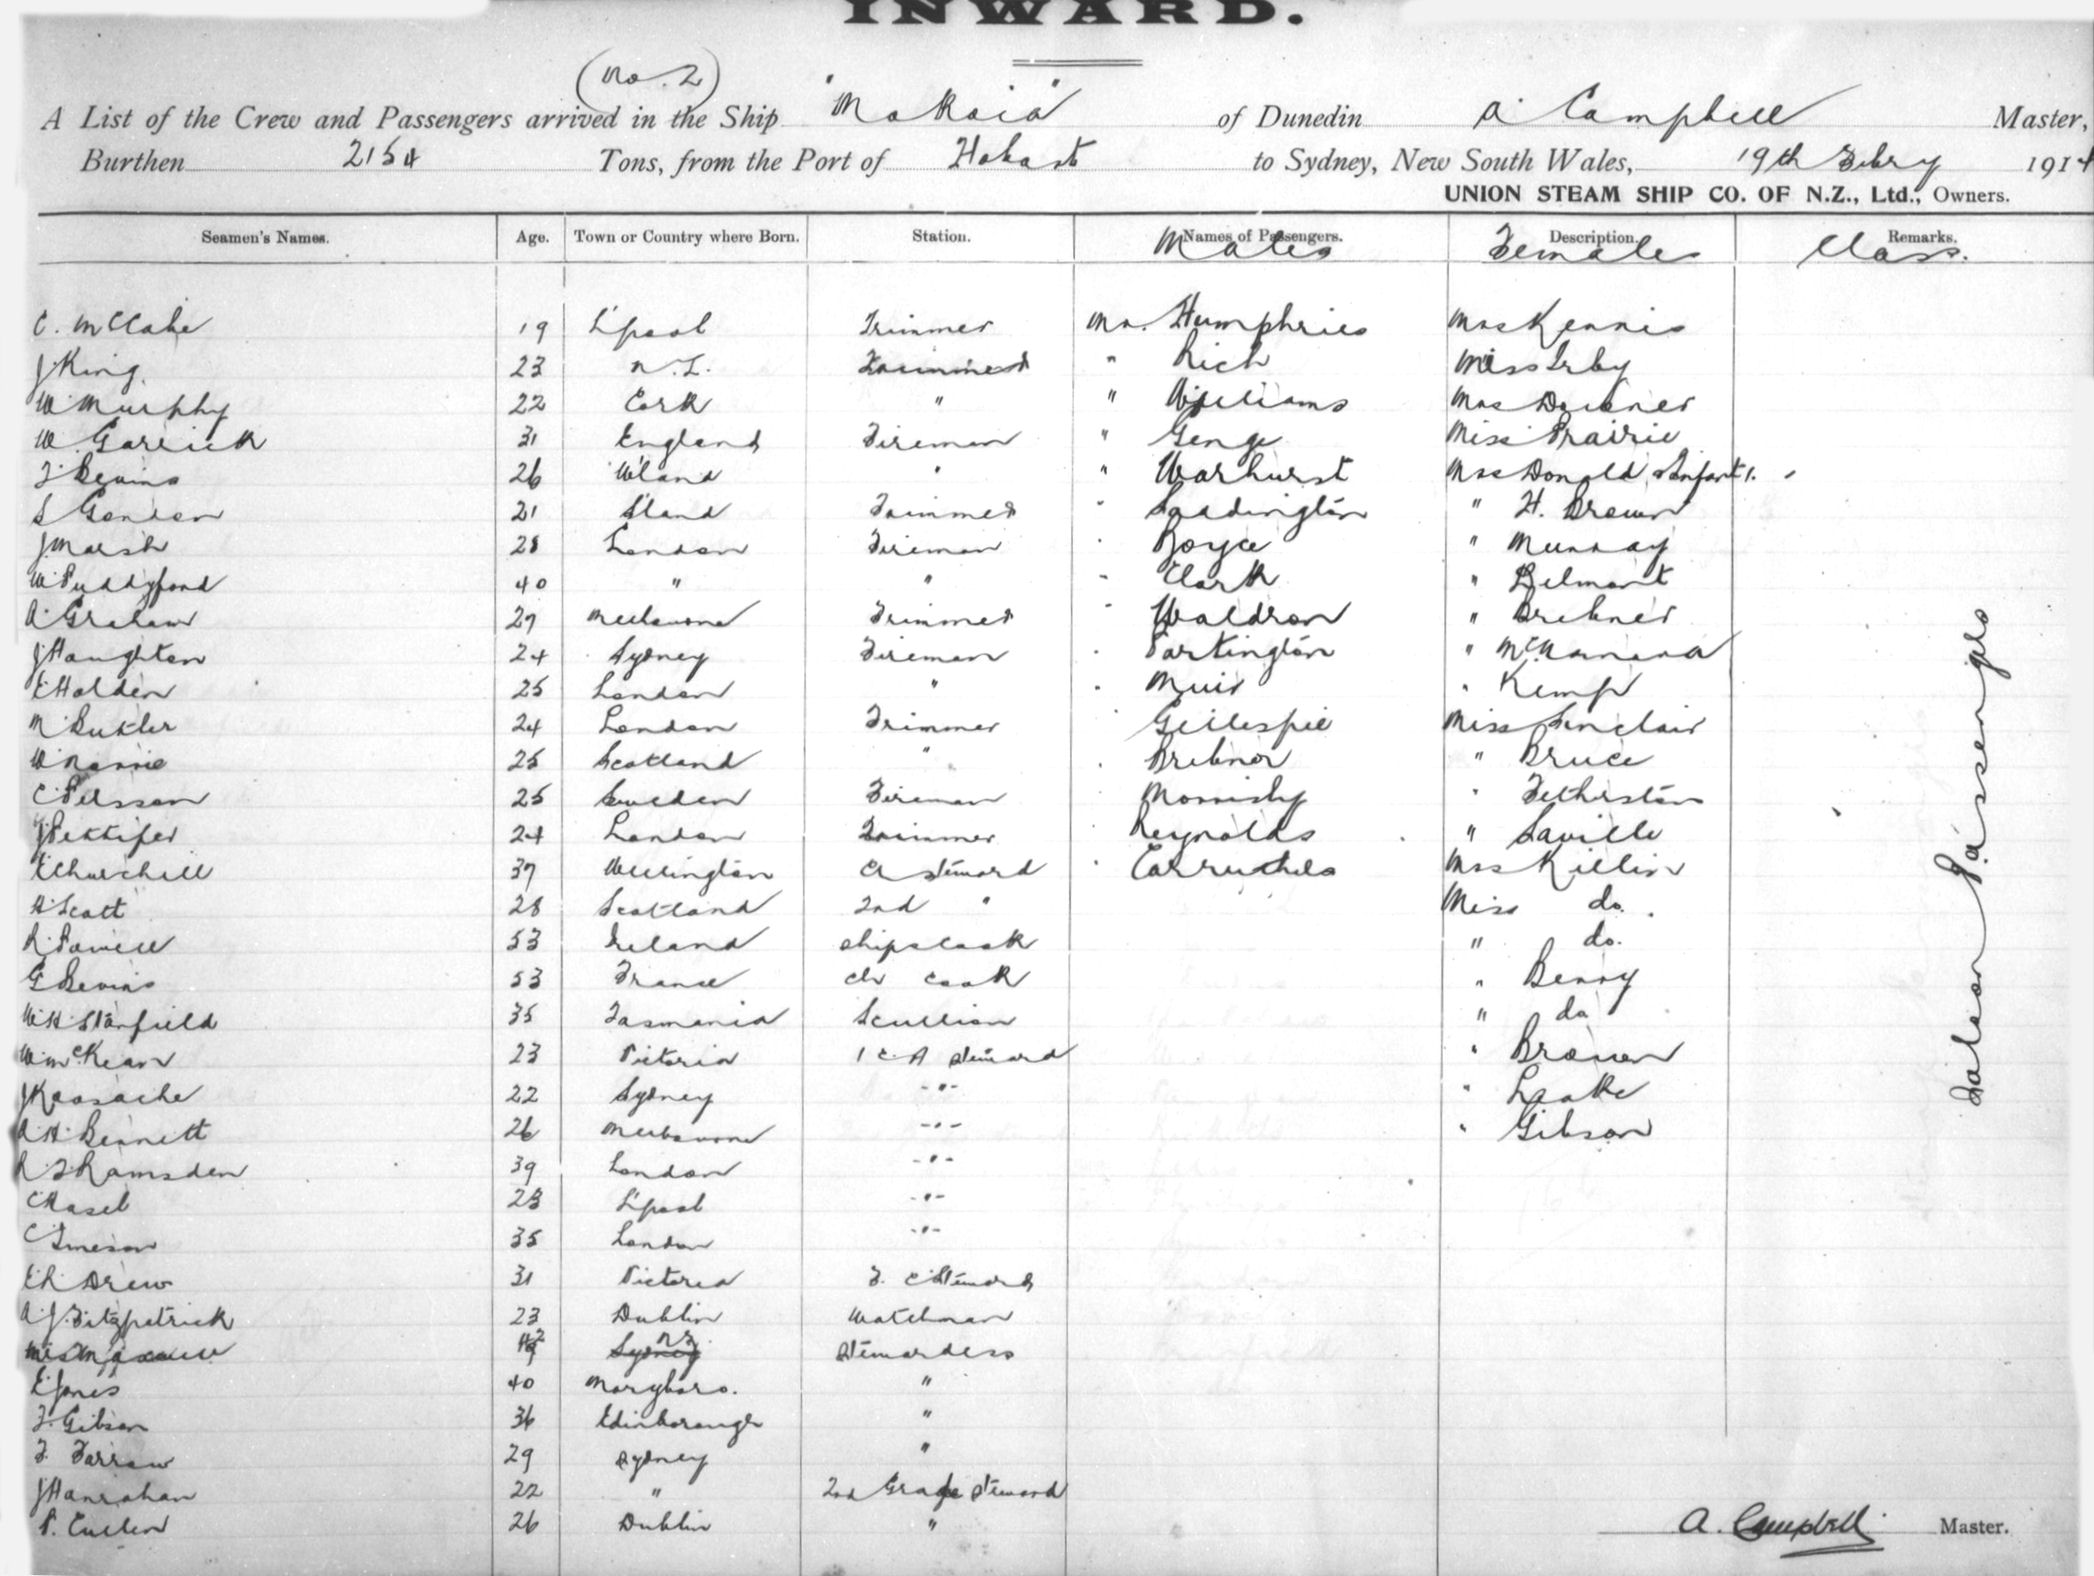 INWARD.
(No. 2)
A List of the Crew and Passengers arrived in the Ship "Mokoia" of Dunedin A Campbell Master,
Burthen 2154 Tons, from the Port of Hobart to Sydney, New South Wales, 19th Febry 1914
UNION STEAM SHIP CO. OF N.Z., Ltd., Owners.
Seamen's Names. Age. Town or Country where Born. Station. Names of Passengers. Description. Remarks.
Males Females Class.
C. McCabe 19 L'pool Trimmer Mr. Humphries Mrs Kennis
J King 23 N.Z. Trimmer " Rich Miss Irby
W Murphy 22 Cork " " Williams Mrs
W Garrick 31 England Fireman " Genge Miss Prairie
F Bevins 26 " " Warhurst Mrs Donald & Infant 1.
S 21 S'land Trimmer " Loadington " H. Brown
J Marsh 28 London Fireman " Boyce " Murray
W Puddyford 40 " " " Clark " Belmont
A Graham 27 Melbourne Trimmer " Waldron " Brebner
J Haughton 24 Sydney Fireman " Partington " McNamara
E Holden 25 London " " Muir " Kemp
M Butler 24 London Trimmer " Gillespie Miss Sinclair
W 25 Scotland " " Brebnor " Bruce
C Persson 25 Sweden Fireman Morrisby " Fetherston
J Pettifer 24 London Trimmer Reynolds " Saville
E Churchill 37 Wellington Ch Steward " Carruthers Mrs Killin
A Scott 28 Scotland 2nd " Miss do.
R Powell 53 Ireland Ships Cook " do.
G Bevins 53 France Ch Cook " Benny
W H Stanfield 35 Tasmania Scullion " do
W McKean 23 Victoria 1 C. A Steward " Brown
J 22 Sydney -"- " Leake
A H Bennett 26 Melbourne -"- " Gibson
R S Ramsden 39 London -"-
C Hasel 23 L'pool -"-
C Imeson 35 London -"-
E R Drew 31 Victoria F. C Steward
A J Fitzpatrick 23 Dublin Watchman
Mrs Maxwell 42 Sydney NZ Stewardess
E Jones 40 Maryboro. "
F. Gibson 36 Edinborough "
F. Farrow 29 Sydney "
J Hanrahan 22 " 2nd Grade Steward
P. Cullen 26 Dublin "
Saloon Passengers
A. Campbell Master.